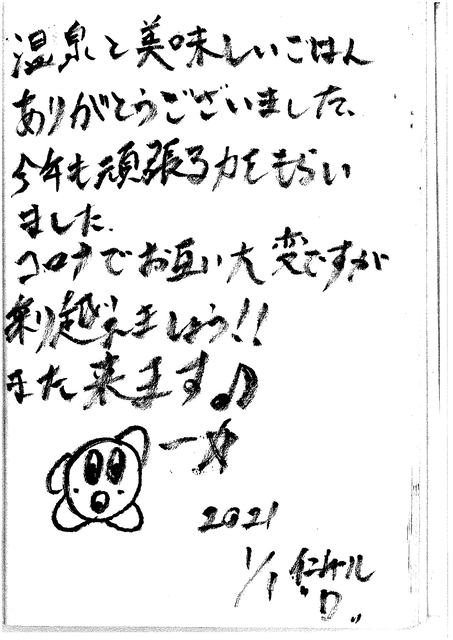 温泉と美味しいごはん
ありがとうございました。
今年も頑張る力をもらい
ました.
コロナでお互い大変ですが
乗り越えましょう!!
また来ます♪
2021
1/1
"D"